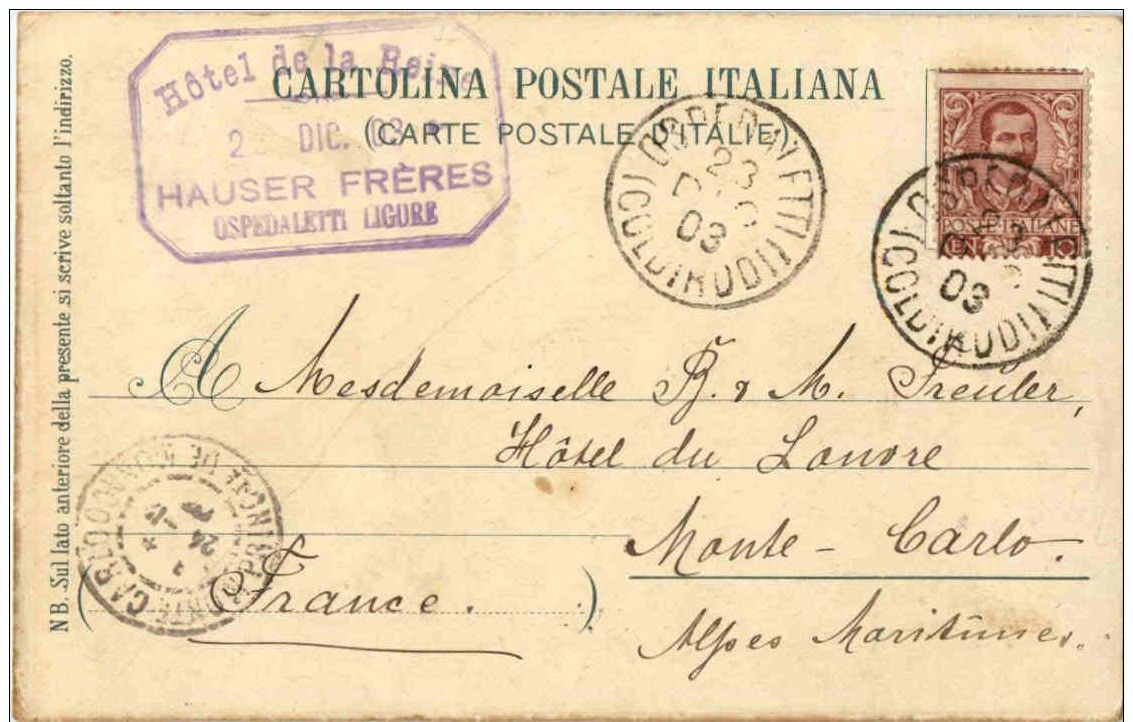 Hôtel de la Reine
2 DIC. 03
HAUSER FRÈRES
OSPEDALETTI LIGURE
CARTOLINA POSTALE ITALIANA
(CARTE POSTALE D'ITALIE)
OSPEDALETTI (COLDIRODI)
23
DIC
03
POSTE ITALIANE
OSPEDALETTI (COLDIRODI)
23
03
NB. Sul lato anteriore della presente si scrive soltanto l'indirizzo.
A Mesdemoiselle B. & M. Treuler,
Hôtel du Louvre
Monte-Carlo.
(France.)
Alpes Maritimes.
MONTE CARLO PRINCIPTÉ DE MONACO
24